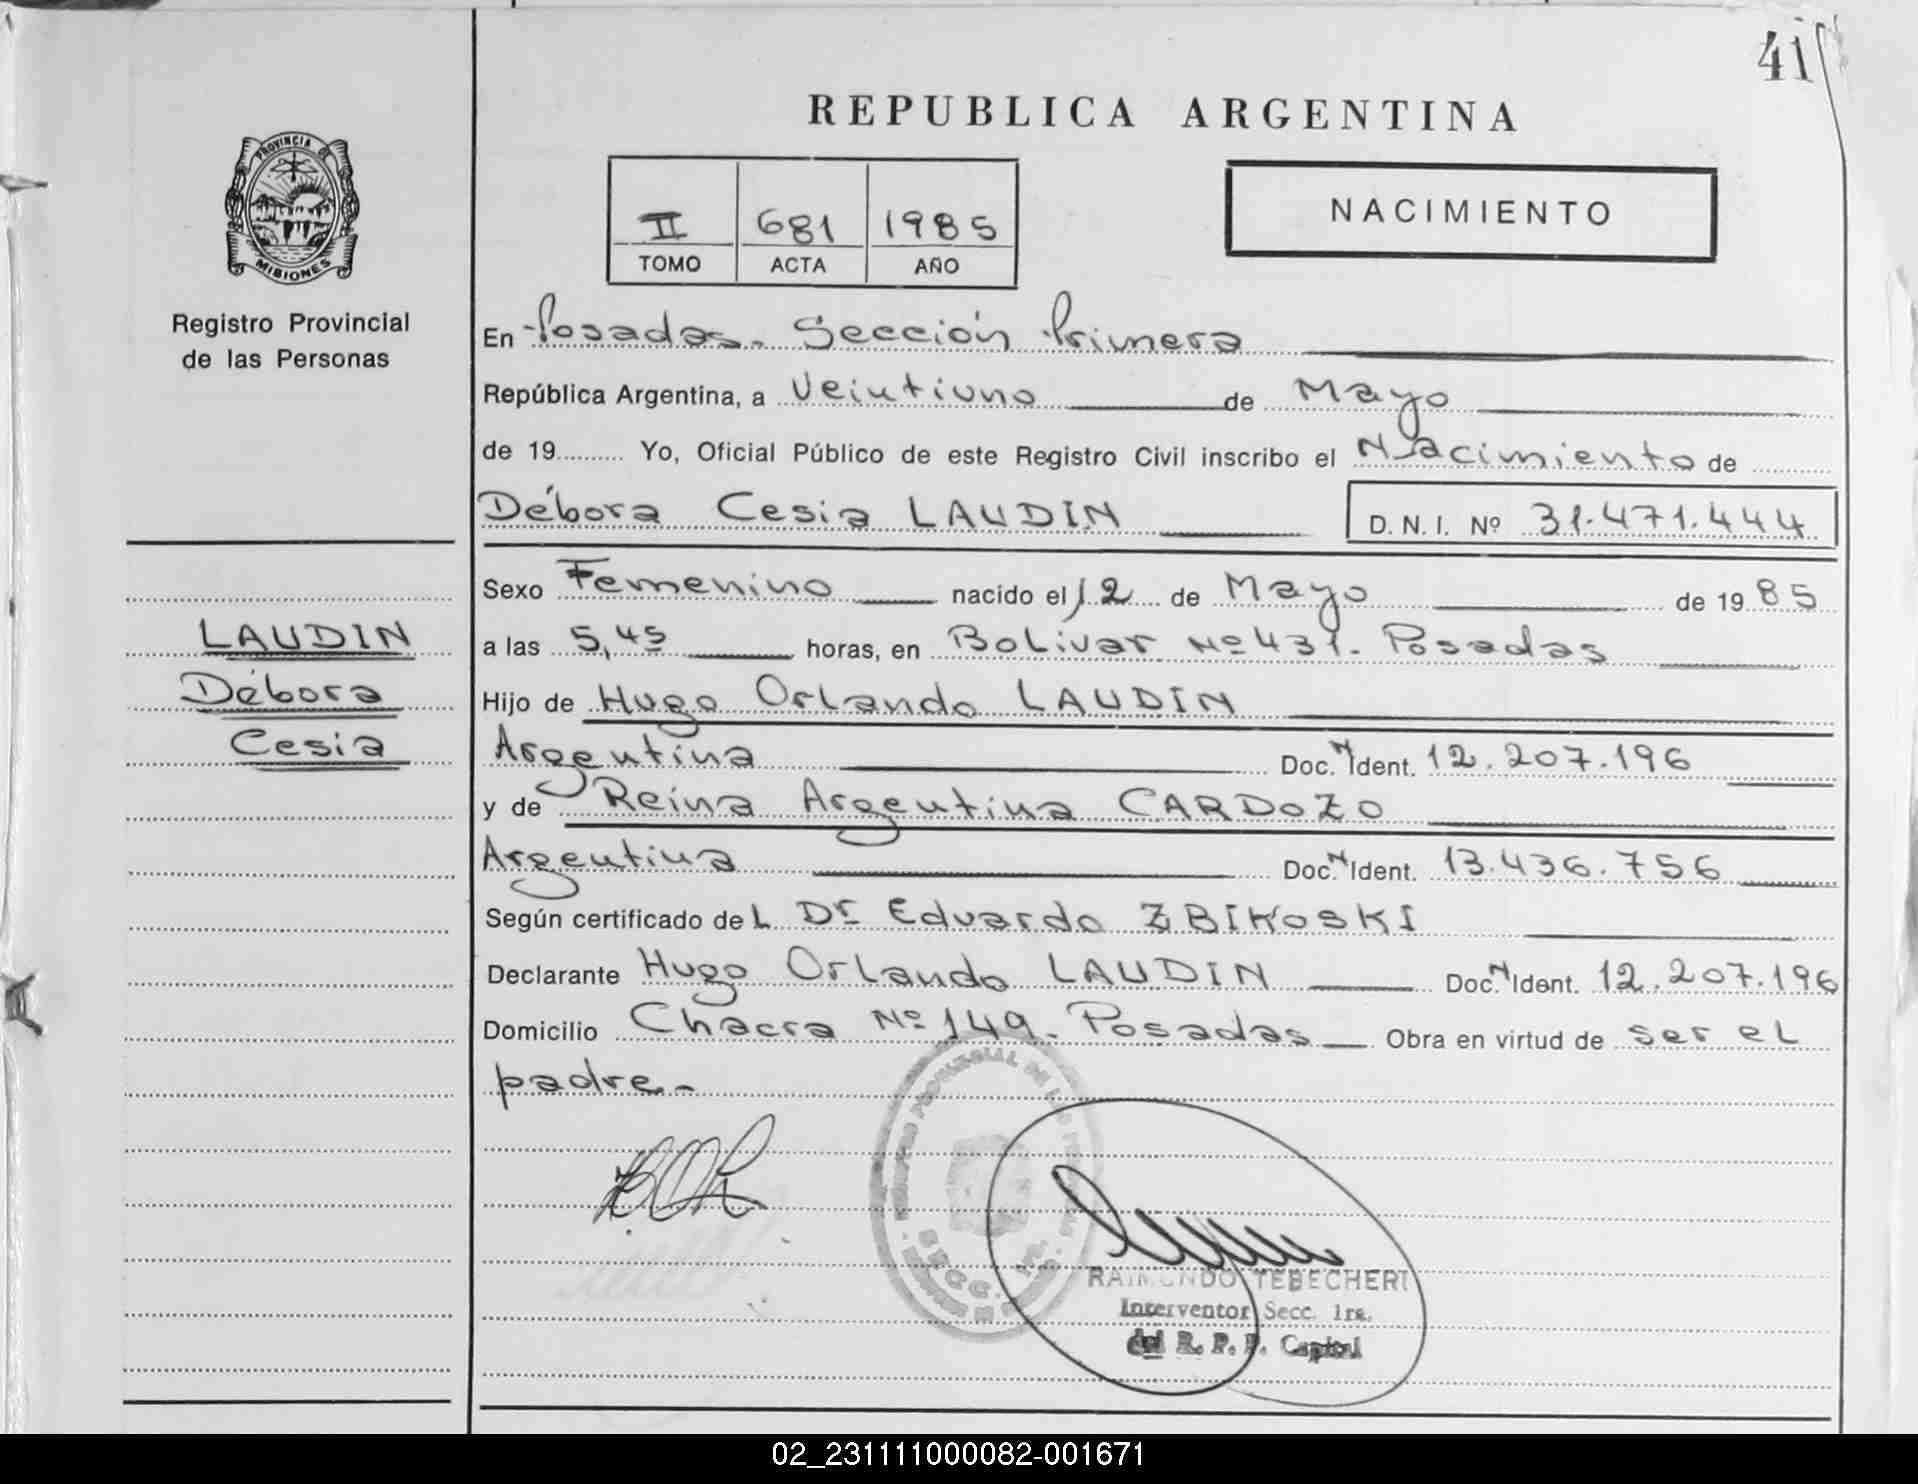 41
REPUBLICA ARGENTINA
PROVINCIA DE
MISIONES
Registro Provincial
de las Personas
II 681 1985
TOMO ACTA AÑO
NACIMIENTO
En Posadas. Sección Primera
República Argentina, a Veintiuno de Mayo
de 19......... Yo, Oficial Público de este Registro Civil inscribo el Nacimiento de
Débora Cesia LAUDIN D. N. I. Nº 31.471.444
Sexo Femenino nacido el 12 de Mayo de 19 85
LAUDIN
Débora
Cesia
a las 5,45 horas, en Bolivar Nº 431. Posadas
Hijo de Hugo Orlando LAUDIN
Argentina Doc. N Ident. 12.207.196
y de Reina Argentina CARDOZO
Argentina Doc. N Ident. 13.436.756
Según certificado de L Dr Eduardo ZBIKOSKI
Declarante Hugo Orlando LAUDIN Doc. N Ident. 12.207.196
Domicilio Chacra Nº 149. Posadas Obra en virtud de ser el
padre.-
REGISTRO PROVINCIAL DE LAS
SECC. 1ra.
RAIMUNDO TEBECHERI
Interventor Secc. 1ra.
del R. P. P. Capital
02_231111000082-001671